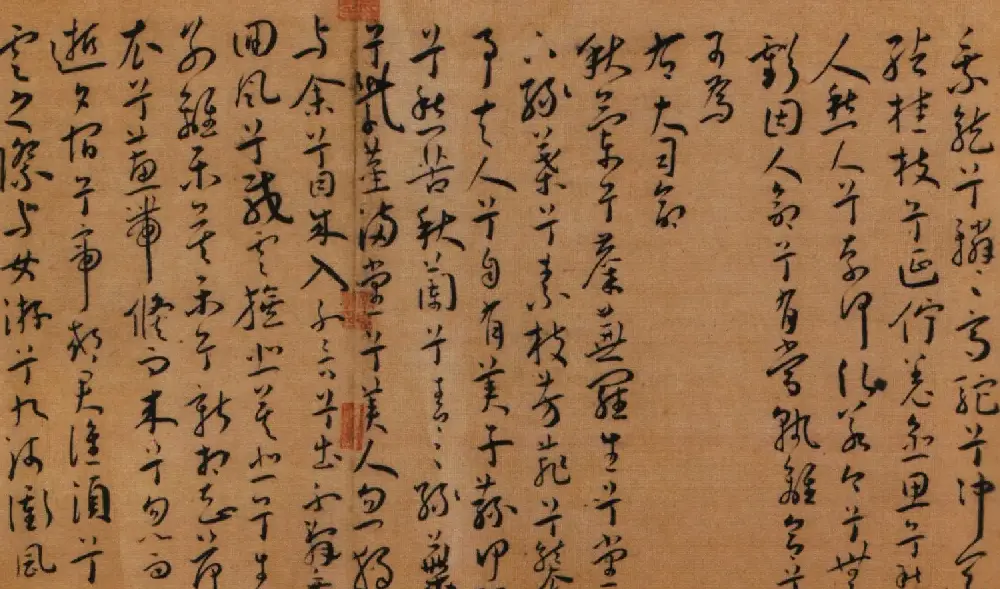 乘龍兮轔〻高駝兮沖天
結桂枝兮延佇羌愈思兮愁
人愁人兮奈何願若今兮無
虧固人命兮有當孰離合兮
可為
右大司命
秋蘭兮麋蕪羅生兮堂
下綠葉兮素枝芳菲〻兮襲
予夫人兮自有美子蓀何
兮愁苦秋蘭兮青〻綠葉
兮紫莖滿堂兮美人忽獨
与余兮目成入不言兮出不辭乘
回風兮載雲旗悲莫悲兮生
別離樂莫樂兮新相知荷
衣兮蕙帶倏而來兮忽而
逝夕宿兮帝郊君誰須兮
雲之際与女游兮九河衝風